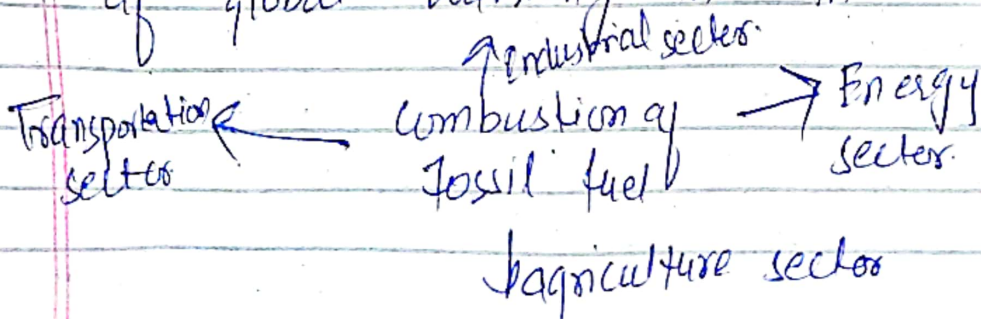 of global
Industrial sector.
Transportation
sector
Combustion of
Fossil fuel
Energy
sector.
agriculture sector